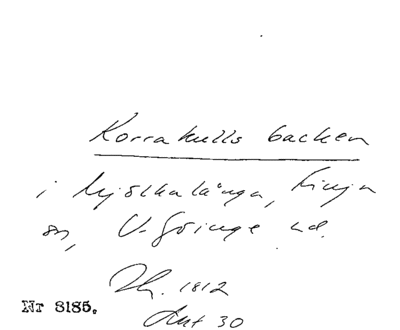 Korrakulls backen
i Mjölkalånga, Finja
sn, V. Göinge hd.
Th. 1812
Akt 30
Nr 8185.